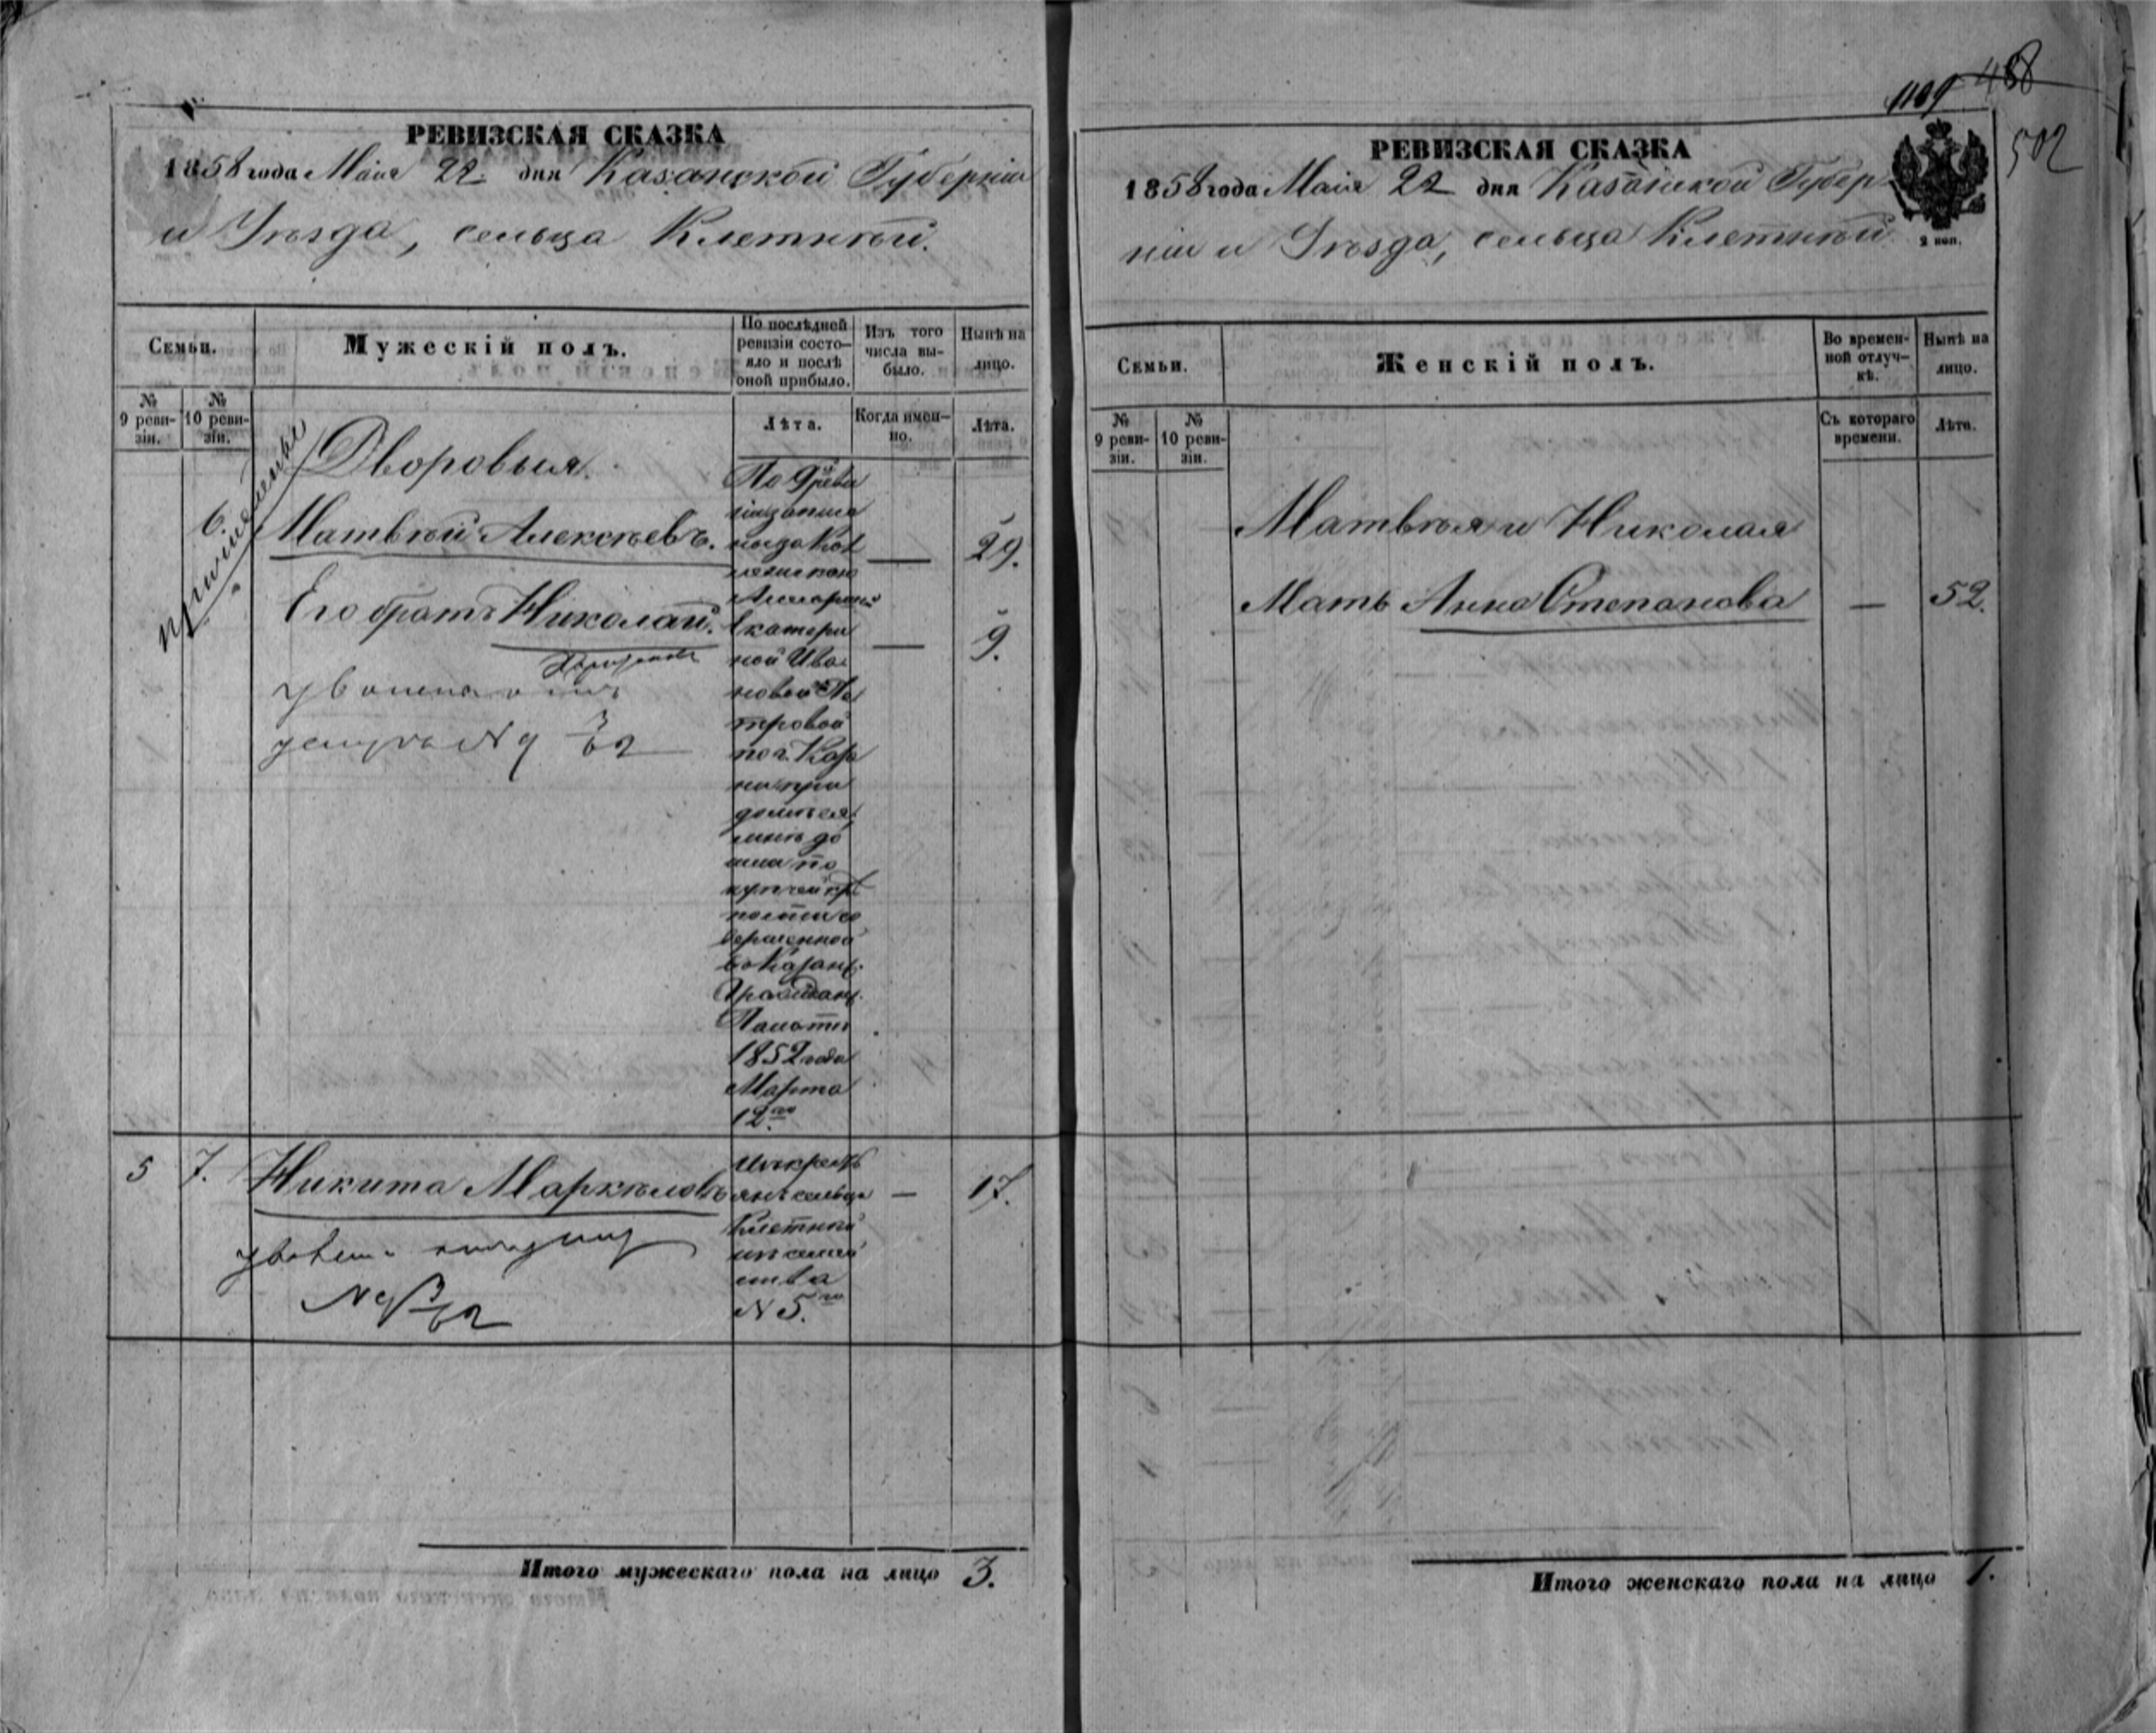 РЕВИЗСКАЯ СКАЗКА
1858 года Маiя 22 дня Казанской Губернiи
и Уѣзда, сельца Клетней.
Семьи.
Мужескiй полъ.
По послѣдней ревизiи состояло и послѣ оной прибыло.
Изъ того числа выбыло.
Нынѣ на лицо.
№ 9 ревизiи.
№ 10 ревизiи.
Лѣта.
Когда именно.
Лѣта.
Дворовыя.
6. Матвѣй Алексѣевъ. — 29.
Его братъ Николай. — 9.
По 9й реви
зiи записа
ны за Кол
Екатери
ной Ива
новой Пе
тровой
по г. Каза
ни при
домѣ ея
мнѣ до
шли по
купчей крѣ
пости со
вершенной
въ Казанс.
Гражданс.
Палатѣ
1852 года
Марта
12го
5 7. Никита Маркѣловъ — 17.
Изъ кресть
янъ сельца
Клетней
изъ семей
ства
N 5го
Итого мужескаго пола на лицо 3.
1109 488
502
РЕВИЗСКАЯ СКАЗКА
1858 года Маiя 22 дня Казанской Губер
нiи и Уѣзда, сельца Клетней
2 коп.
Семьи.
Женскiй полъ.
Во временной отлучкѣ.
Нынѣ на лицо.
№ 9 ревизiи.
№ 10 ревизiи.
Съ котораго времени.
Лѣта.
Матвѣя и Николая
Мать Анна Степанова — 52.
Итого женскаго пола на лицо 1.